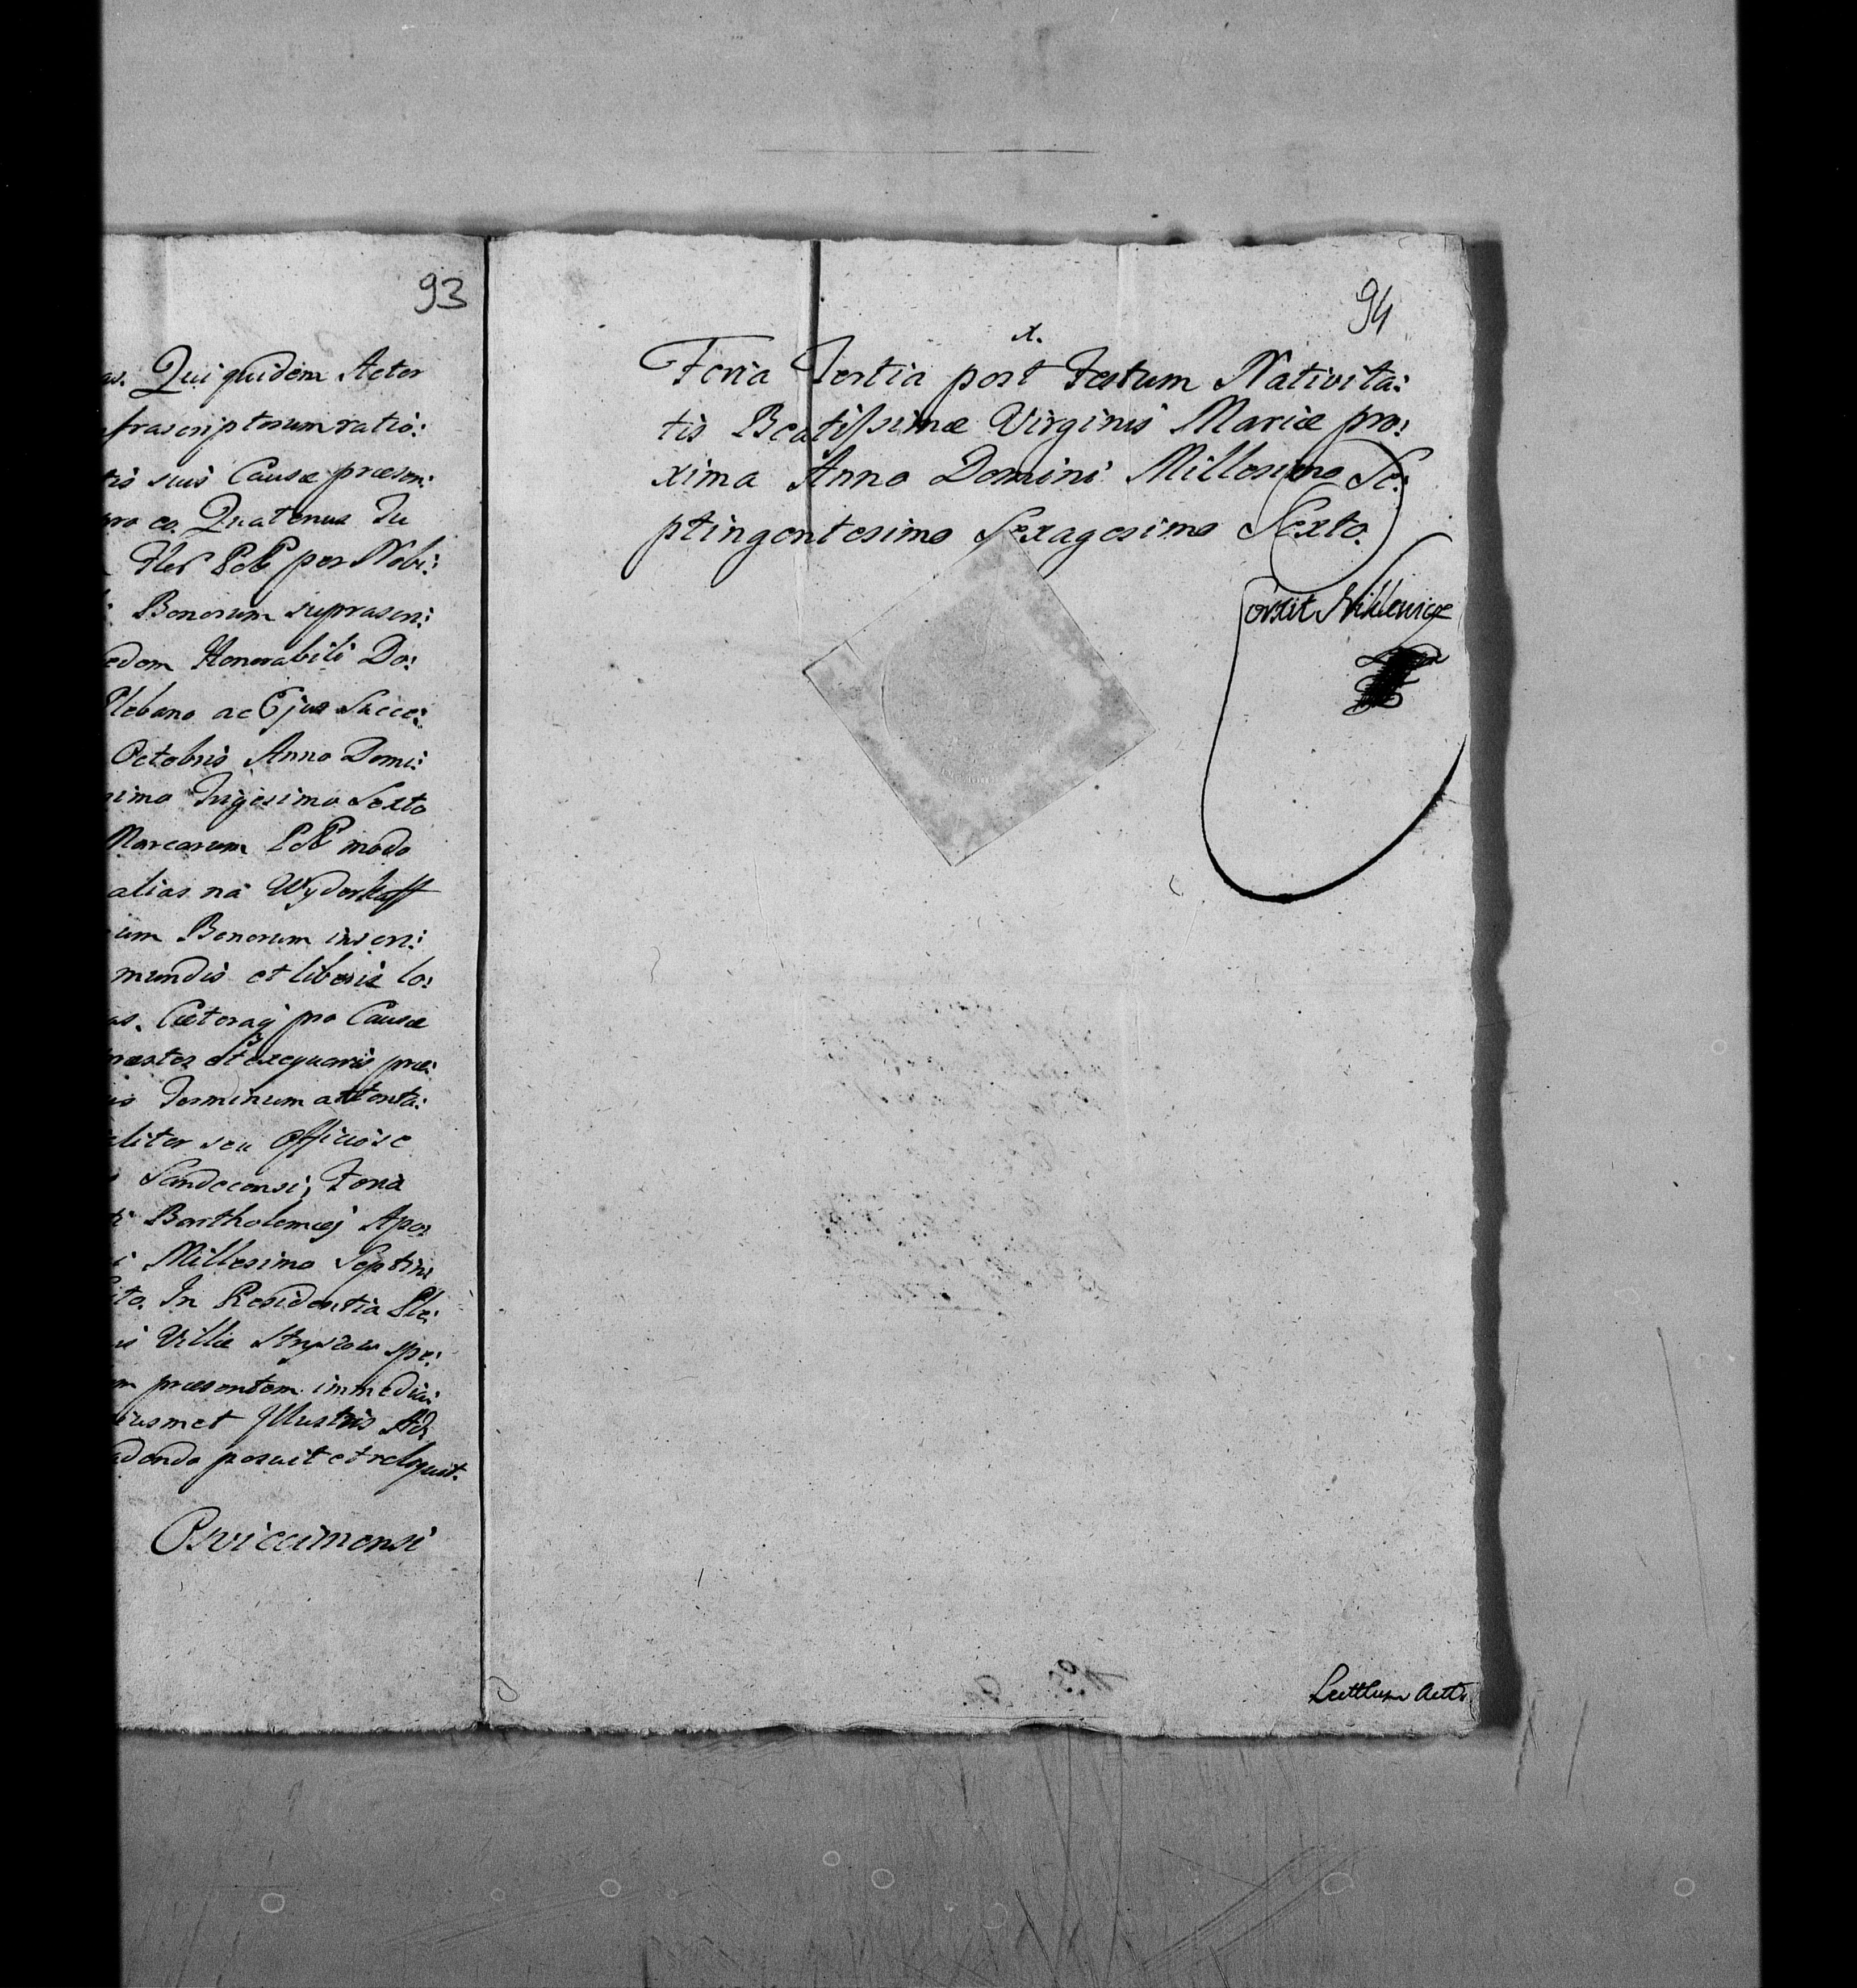 93
Qui quidem Actor
frascriptorum ratio:
tis suis Causæ præsen:
pro eo. Quatenus Tu
per Nobi:
Bonorum suprascri:
edem Honorabili Do:
Plebano ac Ejus Succe:
Octobris Anno Domi:
simo Trigesimo Sexto
Marcarum PolP modo
alias na Wyderkaff
um Bonorum inscri:
mundis et liberis lo:
as. Cæteraq pro Causæ
præstes et exequaris præ:
is Terminum attenta:
aliter seu Officiose
Sandecensi; Feria
ti Bartholomæj Apo:
i Millesimo Septin:
to. In Residentia Ple:
is Villæ Stryszow spe:
m præsentem immedia:
iusmet Jllustris Ad:
adendo posuit et reliquit.
Osviecimensi
94
x.
Feria Tertia post Festum Nativita:
tis Beatissimæ Virginis Mariæ pro:
xima Anno Domini Millesimo Se:
ptingentesimo Sexagesimo Sexto.